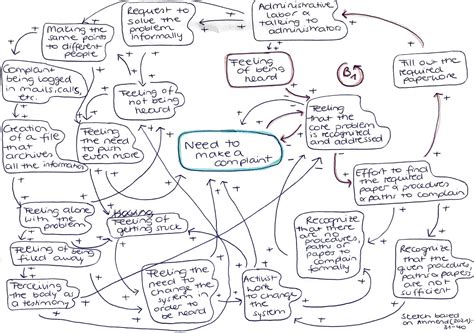 Making the
same points
to different
people
Request to
solve the
problem
informally
Administrative
labor of
talking to
administrators
Fill out the
required
paperwork
Complaint
being logged
in mails, calls,
etc.
Feeling of
not being
heard
Feeling
of being
heard
B1
Feeling
that
the core problem
is recognized
and addressed
Creation
of a file
that
archives
all the information
Feeling
the need
to push
even more
Need to
make a
complaint
Effort to find
the required
paper & procedures
& paths to complain
Feeling alone
with the
problem
Feeling of
getting stuck
Recognize
that there
are no
procedures,
paths or
papers to
complain
formally
Recognize
that the
given procedures,
paths & papers
are not
sufficient
Feeling of being
filed away
Perceiving
the body as
a testimony
Feeling
the need to
change the
system in
order to
be heard
Activist
work to
change the
system
Sketch based
on Ahmed (2021)